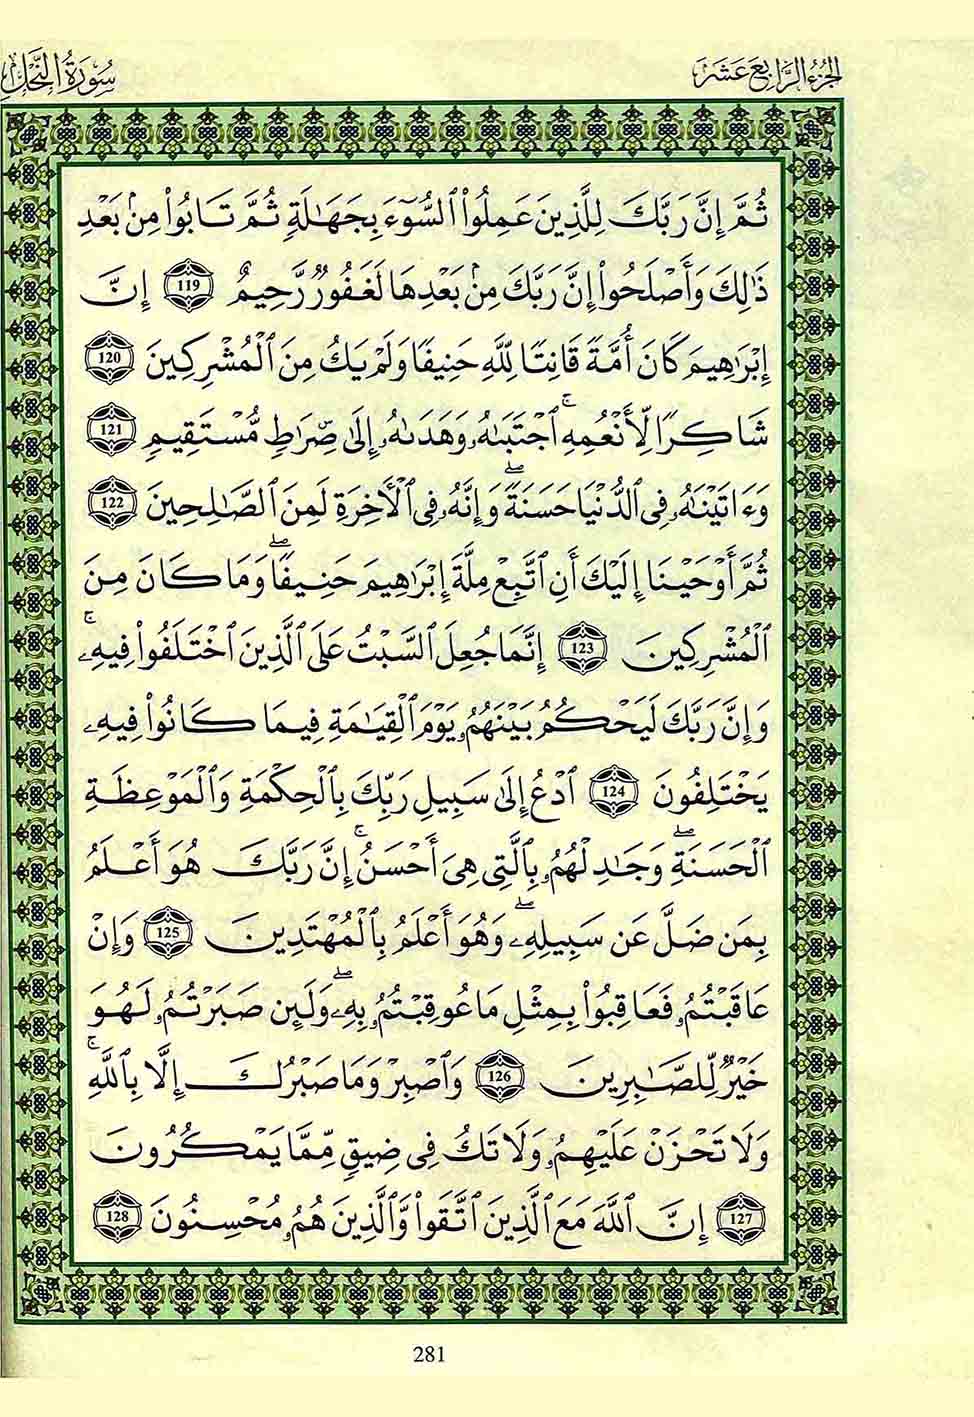 الجزء الرابع عشر
سورة النحل
ثُمَّ إِنَّ رَبَّكَ لِلَّذِينَ عَمِلُوا۟ ٱلسُّوٓءَ بِجَهَـٰلَةٍ ثُمَّ تَابُوا۟ مِنۢ بَعْدِ
ذَٰلِكَ وَأَصْلَحُوٓا۟ إِنَّ رَبَّكَ مِنۢ بَعْدِهَا لَغَفُورٌ رَّحِيمٌ 119 إِنَّ
إِبْرَٰهِيمَ كَانَ أُمَّةً قَانِتًا لِّلَّهِ حَنِيفًا وَلَمْ يَكُ مِنَ ٱلْمُشْرِكِينَ 120
شَاكِرًا لِّأَنْعُمِهِ ۚ ٱجْتَبَىٰهُ وَهَدَىٰهُ إِلَىٰ صِرَٰطٍ مُّسْتَقِيمٍ 121
وَءَاتَيْنَـٰهُ فِى ٱلدُّنْيَا حَسَنَةً ۖ وَإِنَّهُۥ فِى ٱلْـَٔاخِرَةِ لَمِنَ ٱلصَّـٰلِحِينَ 122
ثُمَّ أَوْحَيْنَا إِلَيْكَ أَنِ ٱتَّبِعْ مِلَّةَ إِبْرَٰهِيمَ حَنِيفًا ۖ وَمَا كَانَ مِنَ
ٱلْمُشْرِكِينَ 123 إِنَّمَا جُعِلَ ٱلسَّبْتُ عَلَى ٱلَّذِينَ ٱخْتَلَفُوا۟ فِيهِۦ ۚ
وَإِنَّ رَبَّكَ لَيَحْكُمُ بَيْنَهُمُۥ يَوْمَ ٱلْقِيَـٰمَةِ فِيمَا كَانُوا۟ فِيهِۦ
يَخْتَلِفُونَ 124 ٱدْعُ إِلَىٰ سَبِيلِ رَبِّكَ بِٱلْحِكْمَةِ وَٱلْمَوْعِظَةِ
ٱلْحَسَنَةِ ۖ وَجَـٰدِلْهُمُۥ بِٱلَّتِى هِىَ أَحْسَنُ ۚ إِنَّ رَبَّكَ هُوَ أَعْلَمُ
بِمَن ضَلَّ عَن سَبِيلِهِۦ ۖ وَهُوَ أَعْلَمُ بِٱلْمُهْتَدِينَ 125 وَإِنْ
عَاقَبْتُمُۥ فَعَاقِبُوا۟ بِمِثْلِ مَا عُوقِبْتُمُۥ بِهِۦ ۖ وَلَئِن صَبَرْتُمُۥ لَهُوَ
خَيْرٌ لِّلصَّـٰبِرِينَ 126 وَٱصْبِرْ وَمَا صَبْرُكَ إِلَّا بِٱللَّهِ ۚ
وَلَا تَحْزَنْ عَلَيْهِمُۥ وَلَا تَكُ فِى ضِيقٍ مِّمَّا يَمْكُرُونَ
127 إِنَّ ٱللَّهَ مَعَ ٱلَّذِينَ ٱتَّقَوا۟ وَّٱلَّذِينَ هُمُۥ مُحْسِنُونَ 128
281